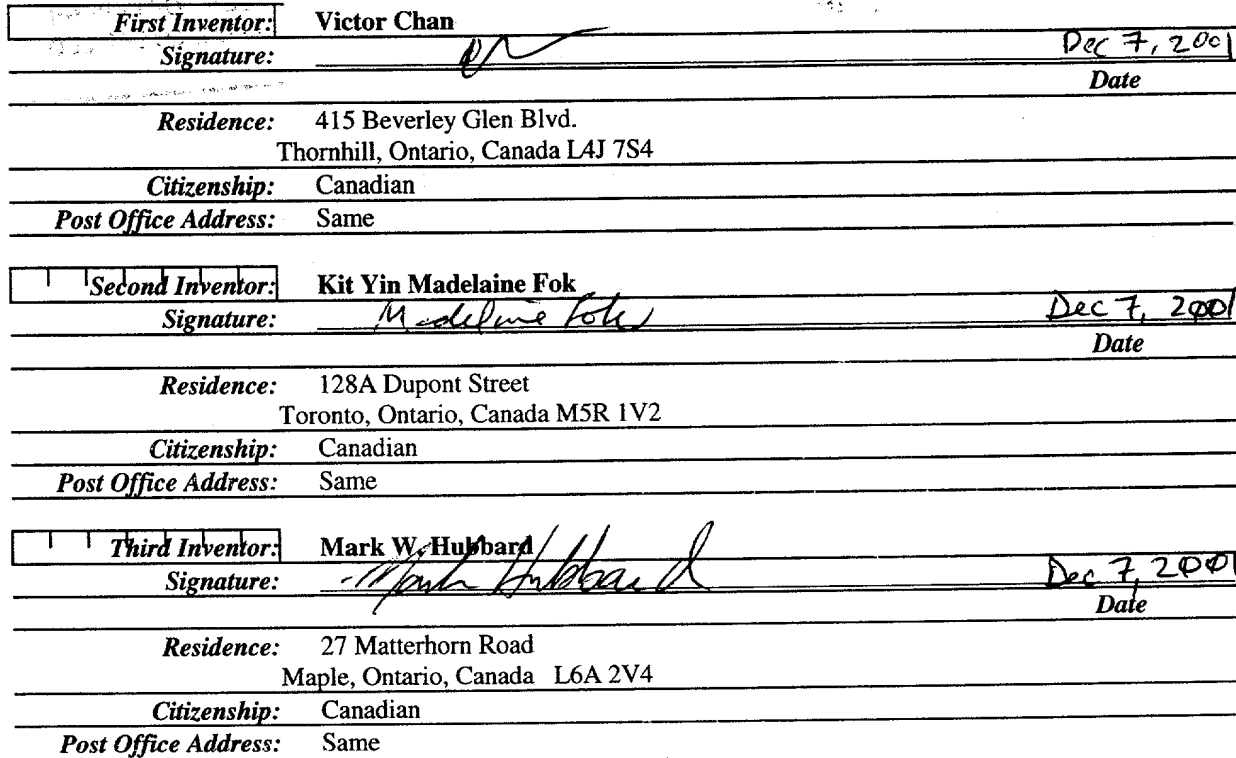 First Inventor: Victor Chan
Signature: Dec 7, 2001
Date
Residence: 415 Beverley Glen Blvd.
Thornhill, Ontario, Canada L4J 7S4
Citizenship: Canadian
Post Office Address: Same
Second Inventor: Kit Yin Madelaine Fok
Signature: Madeline Fok Dec 7, 2001
Date
Residence: 128A Dupont Street
Toronto, Ontario, Canada M5R 1V2
Citizenship: Canadian
Post Office Address: Same
Third Inventor: Mark W. Hubbard
Signature: Mark Hubbard Dec 7, 2001
Date
Residence: 27 Matterhorn Road
Maple, Ontario, Canada L6A 2V4
Citizenship: Canadian
Post Office Address: Same